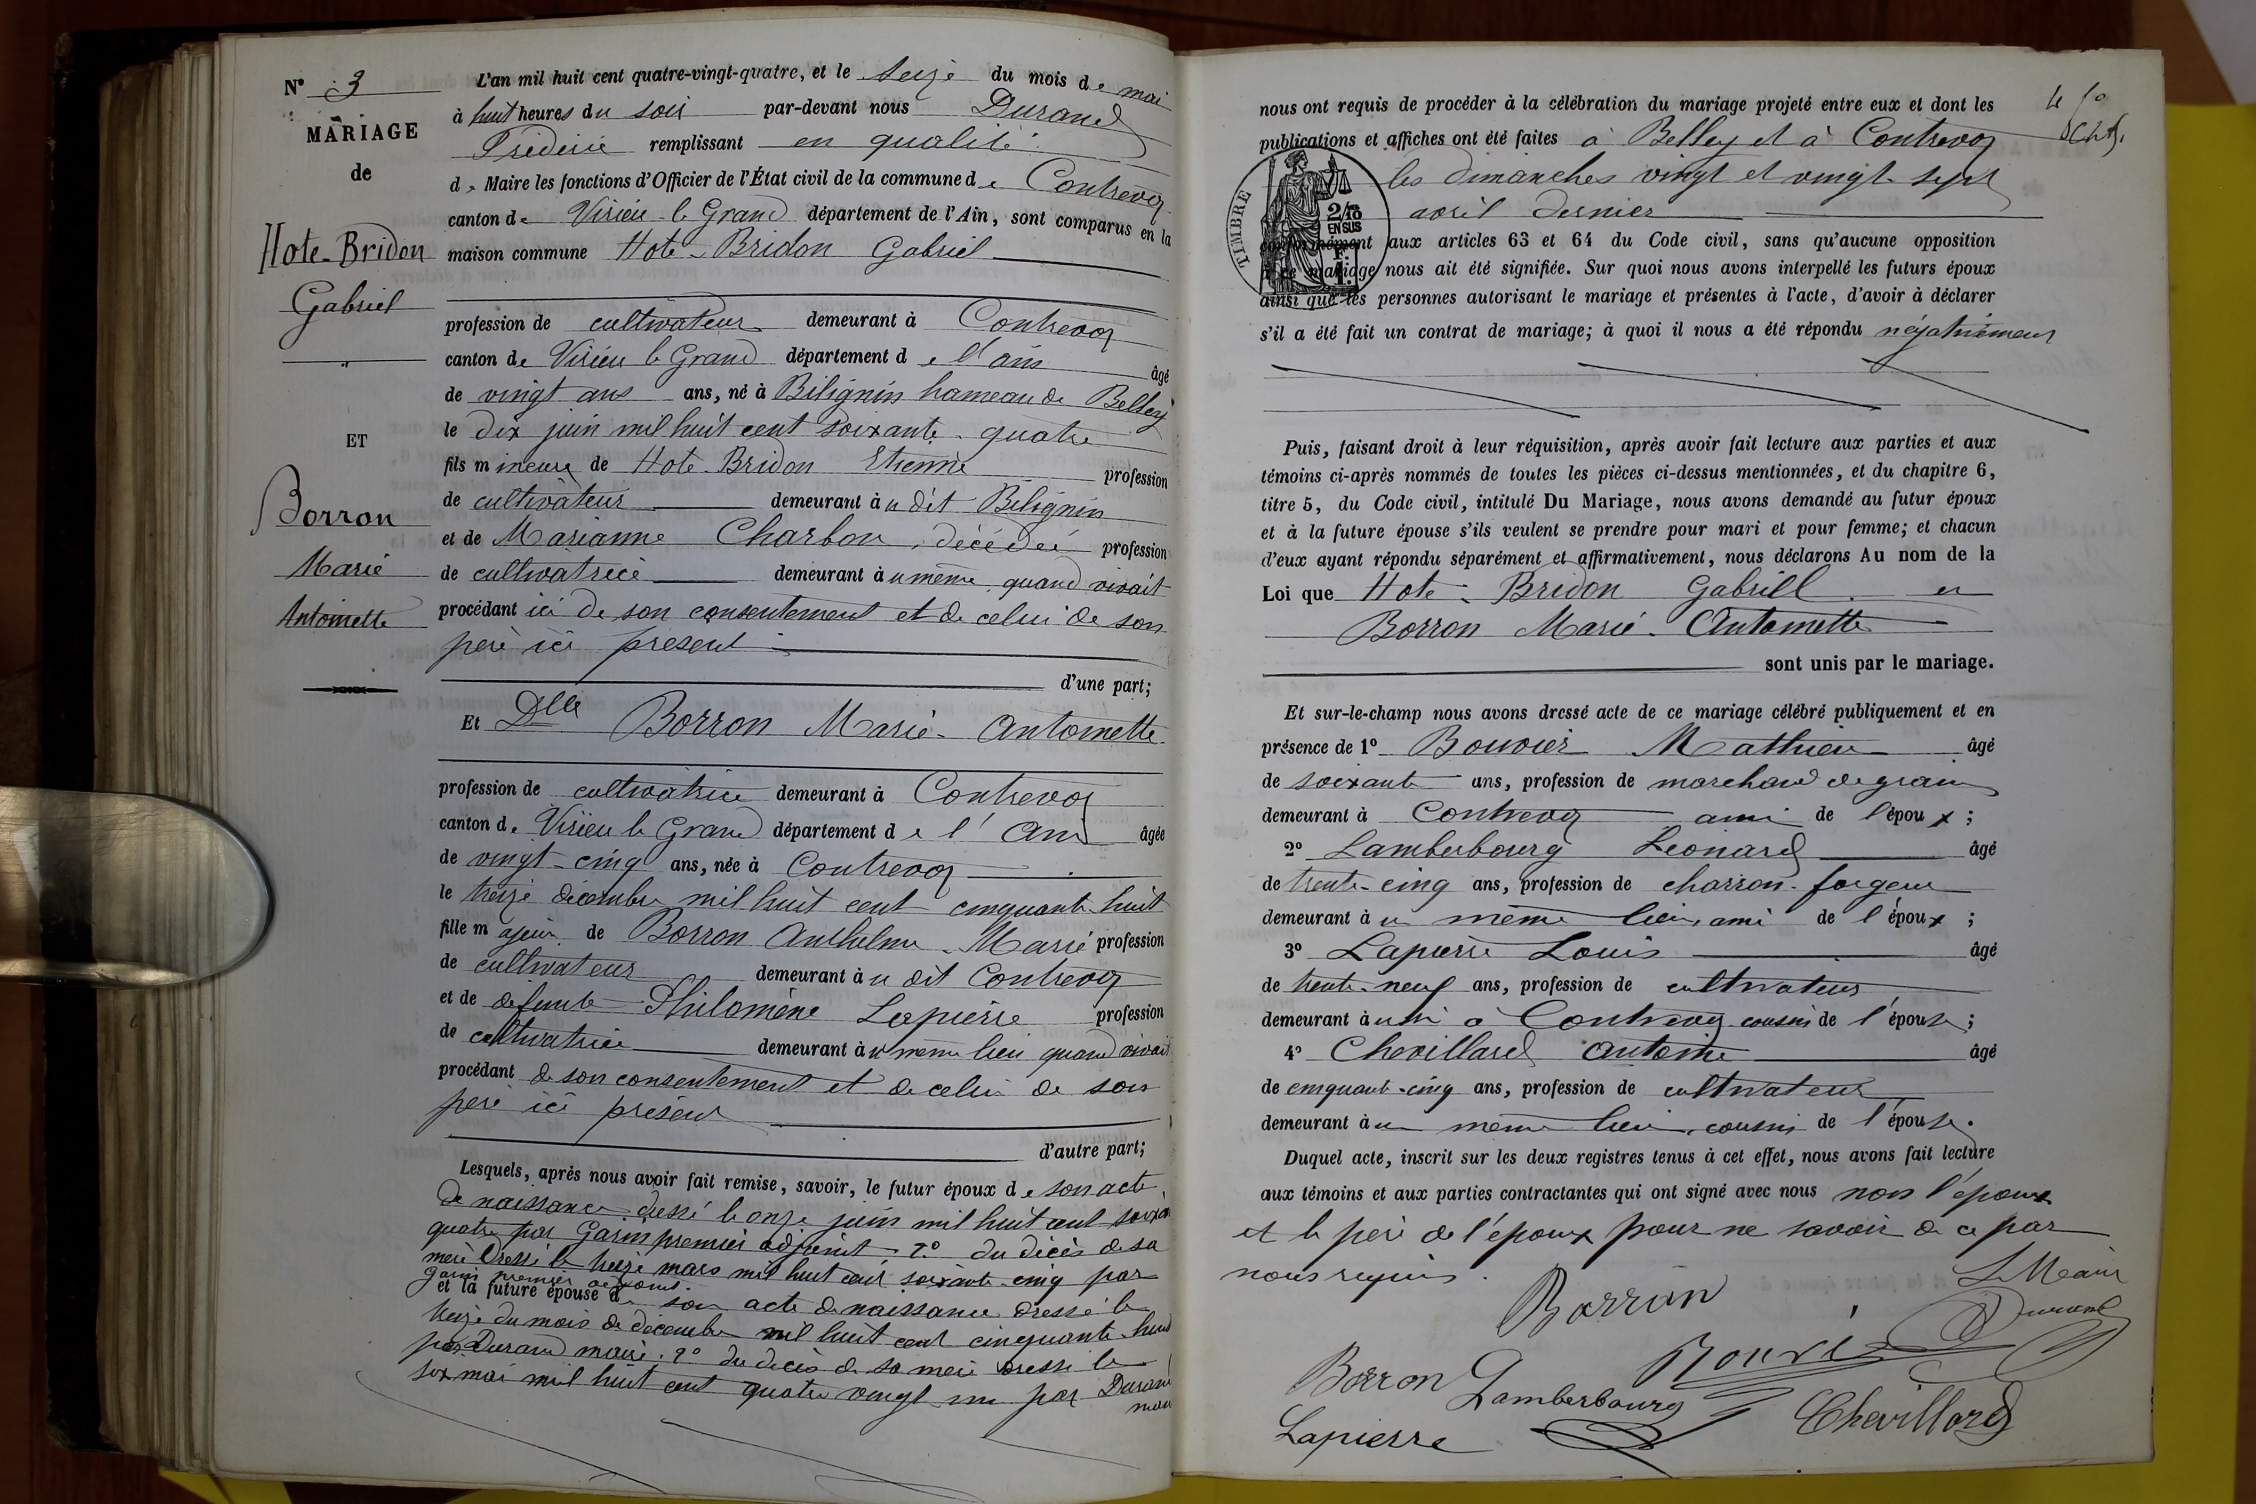 N° 3
MARIAGE
de
Hote-Bridon
Gabriel
ET
Borron
Marie
Antoinette
L'an mil huit cent quatre-vingt-quatre, et le seize du mois de mai
à huit heures du soir par-devant nous Durand
Frédéric remplissant en qualité
de Maire les fonctions d'Officier de l'État civil de la commune de Contrevoz
canton de Virieu-le Grand département de l'Ain, sont comparus en la
maison commune Hote-Bridon Gabriel
profession de cultivateur demeurant à Contrevoz
canton de Virieu le Grand département de l'ain âgé
de vingt ans ans, né à Bilignin hameau de Belley
le dix juin mil huit cent soixante-quatre
fils mineur de Hote-Bridon Etienne profession
de cultivateur demeurant à u dit Bilignin
et de Marianne Charbon, décédée profession
de cultivatrice demeurant à u même quand vivait
procédant ici de son consentement et de celui de son
père ici présent
d'une part;
Et Dlle Borron Marie-Antoinette
profession de cultivatrice demeurant à Contrevoz
canton de Virieu le Grand département de l'Ain âgée
de vingt-cinq ans, née à Contrevoz
le treize décembre mil huit cent cinquante-huit
fille majeure de Borron Anthelme-Marie profession
de cultivateur demeurant à u dit Contrevoz
et de défunte Philomène Lapierre profession
de cultivatrice demeurant à u même lieu quand vivait
procédant de son consentement et de celui de son
père ici présent
d'autre part;
Lesquels, après nous avoir fait remise, savoir, le futur époux de son acte
de naissance dressé le onze juin mil huit cent soixante
quatre par Garin premier adjoint 2° du décès de sa
mère dressé le treize mars mil huit cent soixante-cinq par
Garin premier adjoint
et la future épouse de son acte de naissance dressé le
treize du mois de décembre mil huit cent cinquante-huit
par Durand maire. 2° du décès de sa mère dressé le
six mai mil huit cent quatre vingt un par Durand
maire
nous ont requis de procéder à la célébration du mariage projeté entre eux et dont les
publications et affiches ont été faites à Belley et à Contrevoz
les dimanches vingt et vingt-sept
avril dernier
TIMBRE
2/10
EN SUS
conformément aux articles 63 et 64 du Code civil, sans qu'aucune opposition
à ce mariage nous ait été signifiée. Sur quoi nous avons interpellé les futurs époux
ainsi que les personnes autorisant le mariage et présentes à l'acte, d'avoir à déclarer
s'il a été fait un contrat de mariage; à quoi il nous a été répondu négativement
Puis, faisant droit à leur réquisition, après avoir fait lecture aux parties et aux
témoins ci-après nommés de toutes les pièces ci-dessus mentionnées, et du chapitre 6,
titre 5, du Code civil, intitulé Du Mariage, nous avons demandé au futur époux
et à la future épouse s'ils veulent se prendre pour mari et pour femme; et chacun
d'eux ayant répondu séparément et affirmativement, nous déclarons Au nom de la
Loi que Hote-Bridon Gabriell et
Borron Marie-Antoinette
sont unis par le mariage.
Et sur-le-champ nous avons dressé acte de ce mariage célébré publiquement et en
présence de 1° Bouvier Mathieu âgé
de soixante ans, profession de marchand de grain
demeurant à Contrevoz ami de l'époux;
2° Lamberbourg Léonard âgé
de trente-cinq ans, profession de charron-forgeur
demeurant à u même lieu, ami de l'époux;
3° Lapierre Louis âgé
de trente-neuf ans, profession de cultivateur
demeurant à ussi à Contrevoz cousin de l'épouse;
4° Chevillard Antoine âgé
de cinquante-cinq ans, profession de cultivateur
demeurant à u même lieu, cousin de l'épouse.
Duquel acte, inscrit sur les deux registres tenus à cet effet, nous avons fait lecture
aux témoins et aux parties contractantes qui ont signé avec nous non l'époux
et le père de l'époux pour ne savoir de ce par
nous requis.
Le Maire
Borron
Durand
Borron
Lamberbourg
Bouvié
Lapierre
Chevillard